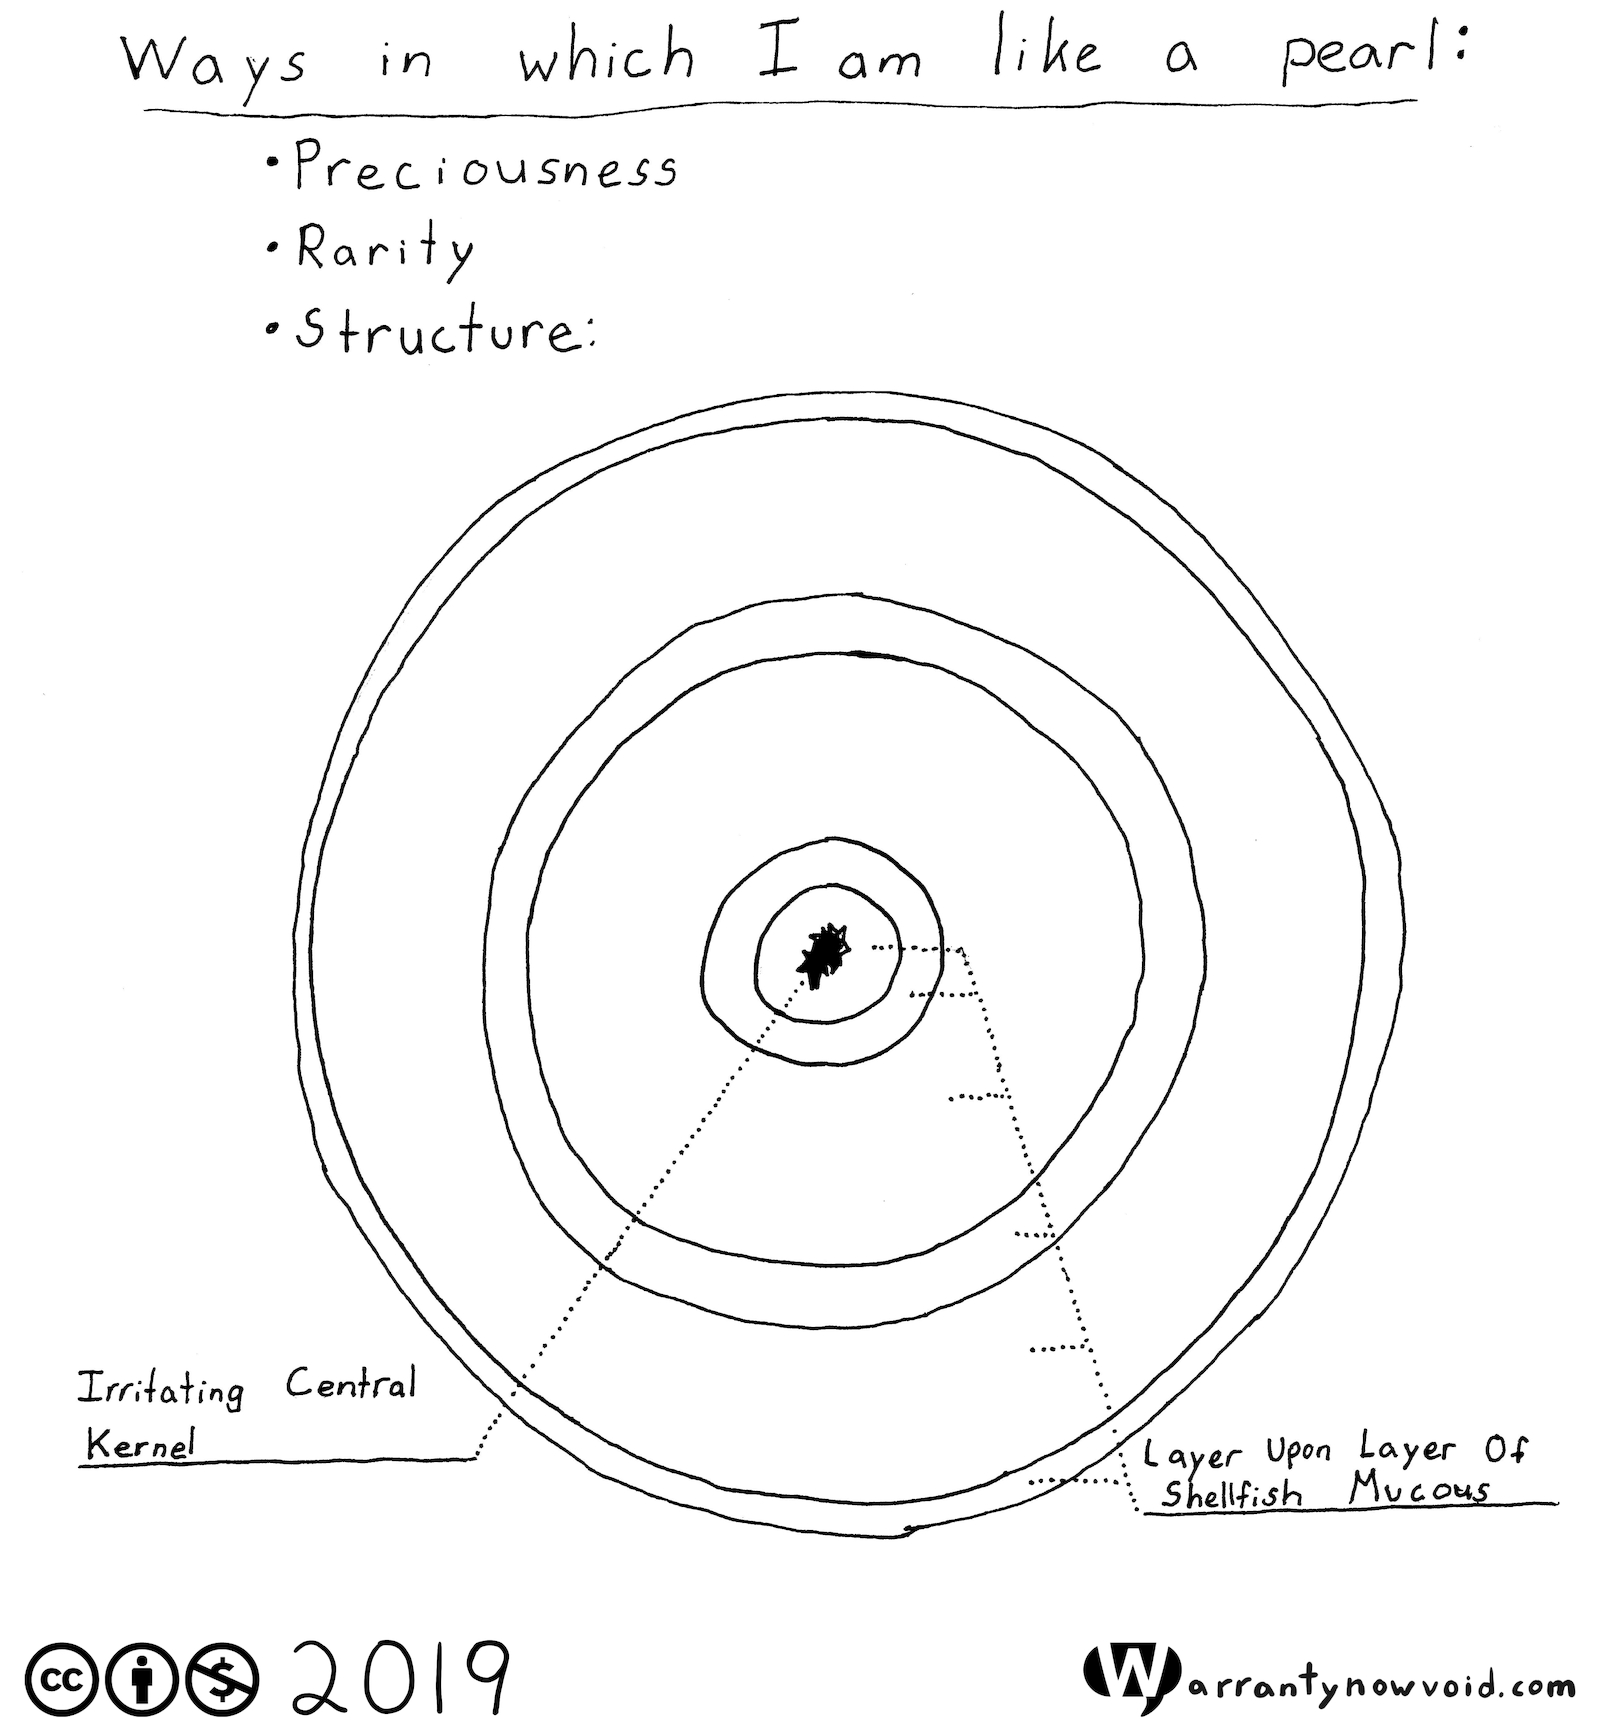 Ways in which I am like a pearl:
• Preciousness
• Rarity
• Structure:
Irritating Central
Kernel
Layer Upon Layer Of
Shellfish Mucous
cc $ 2019
Warrantynowvoid.com